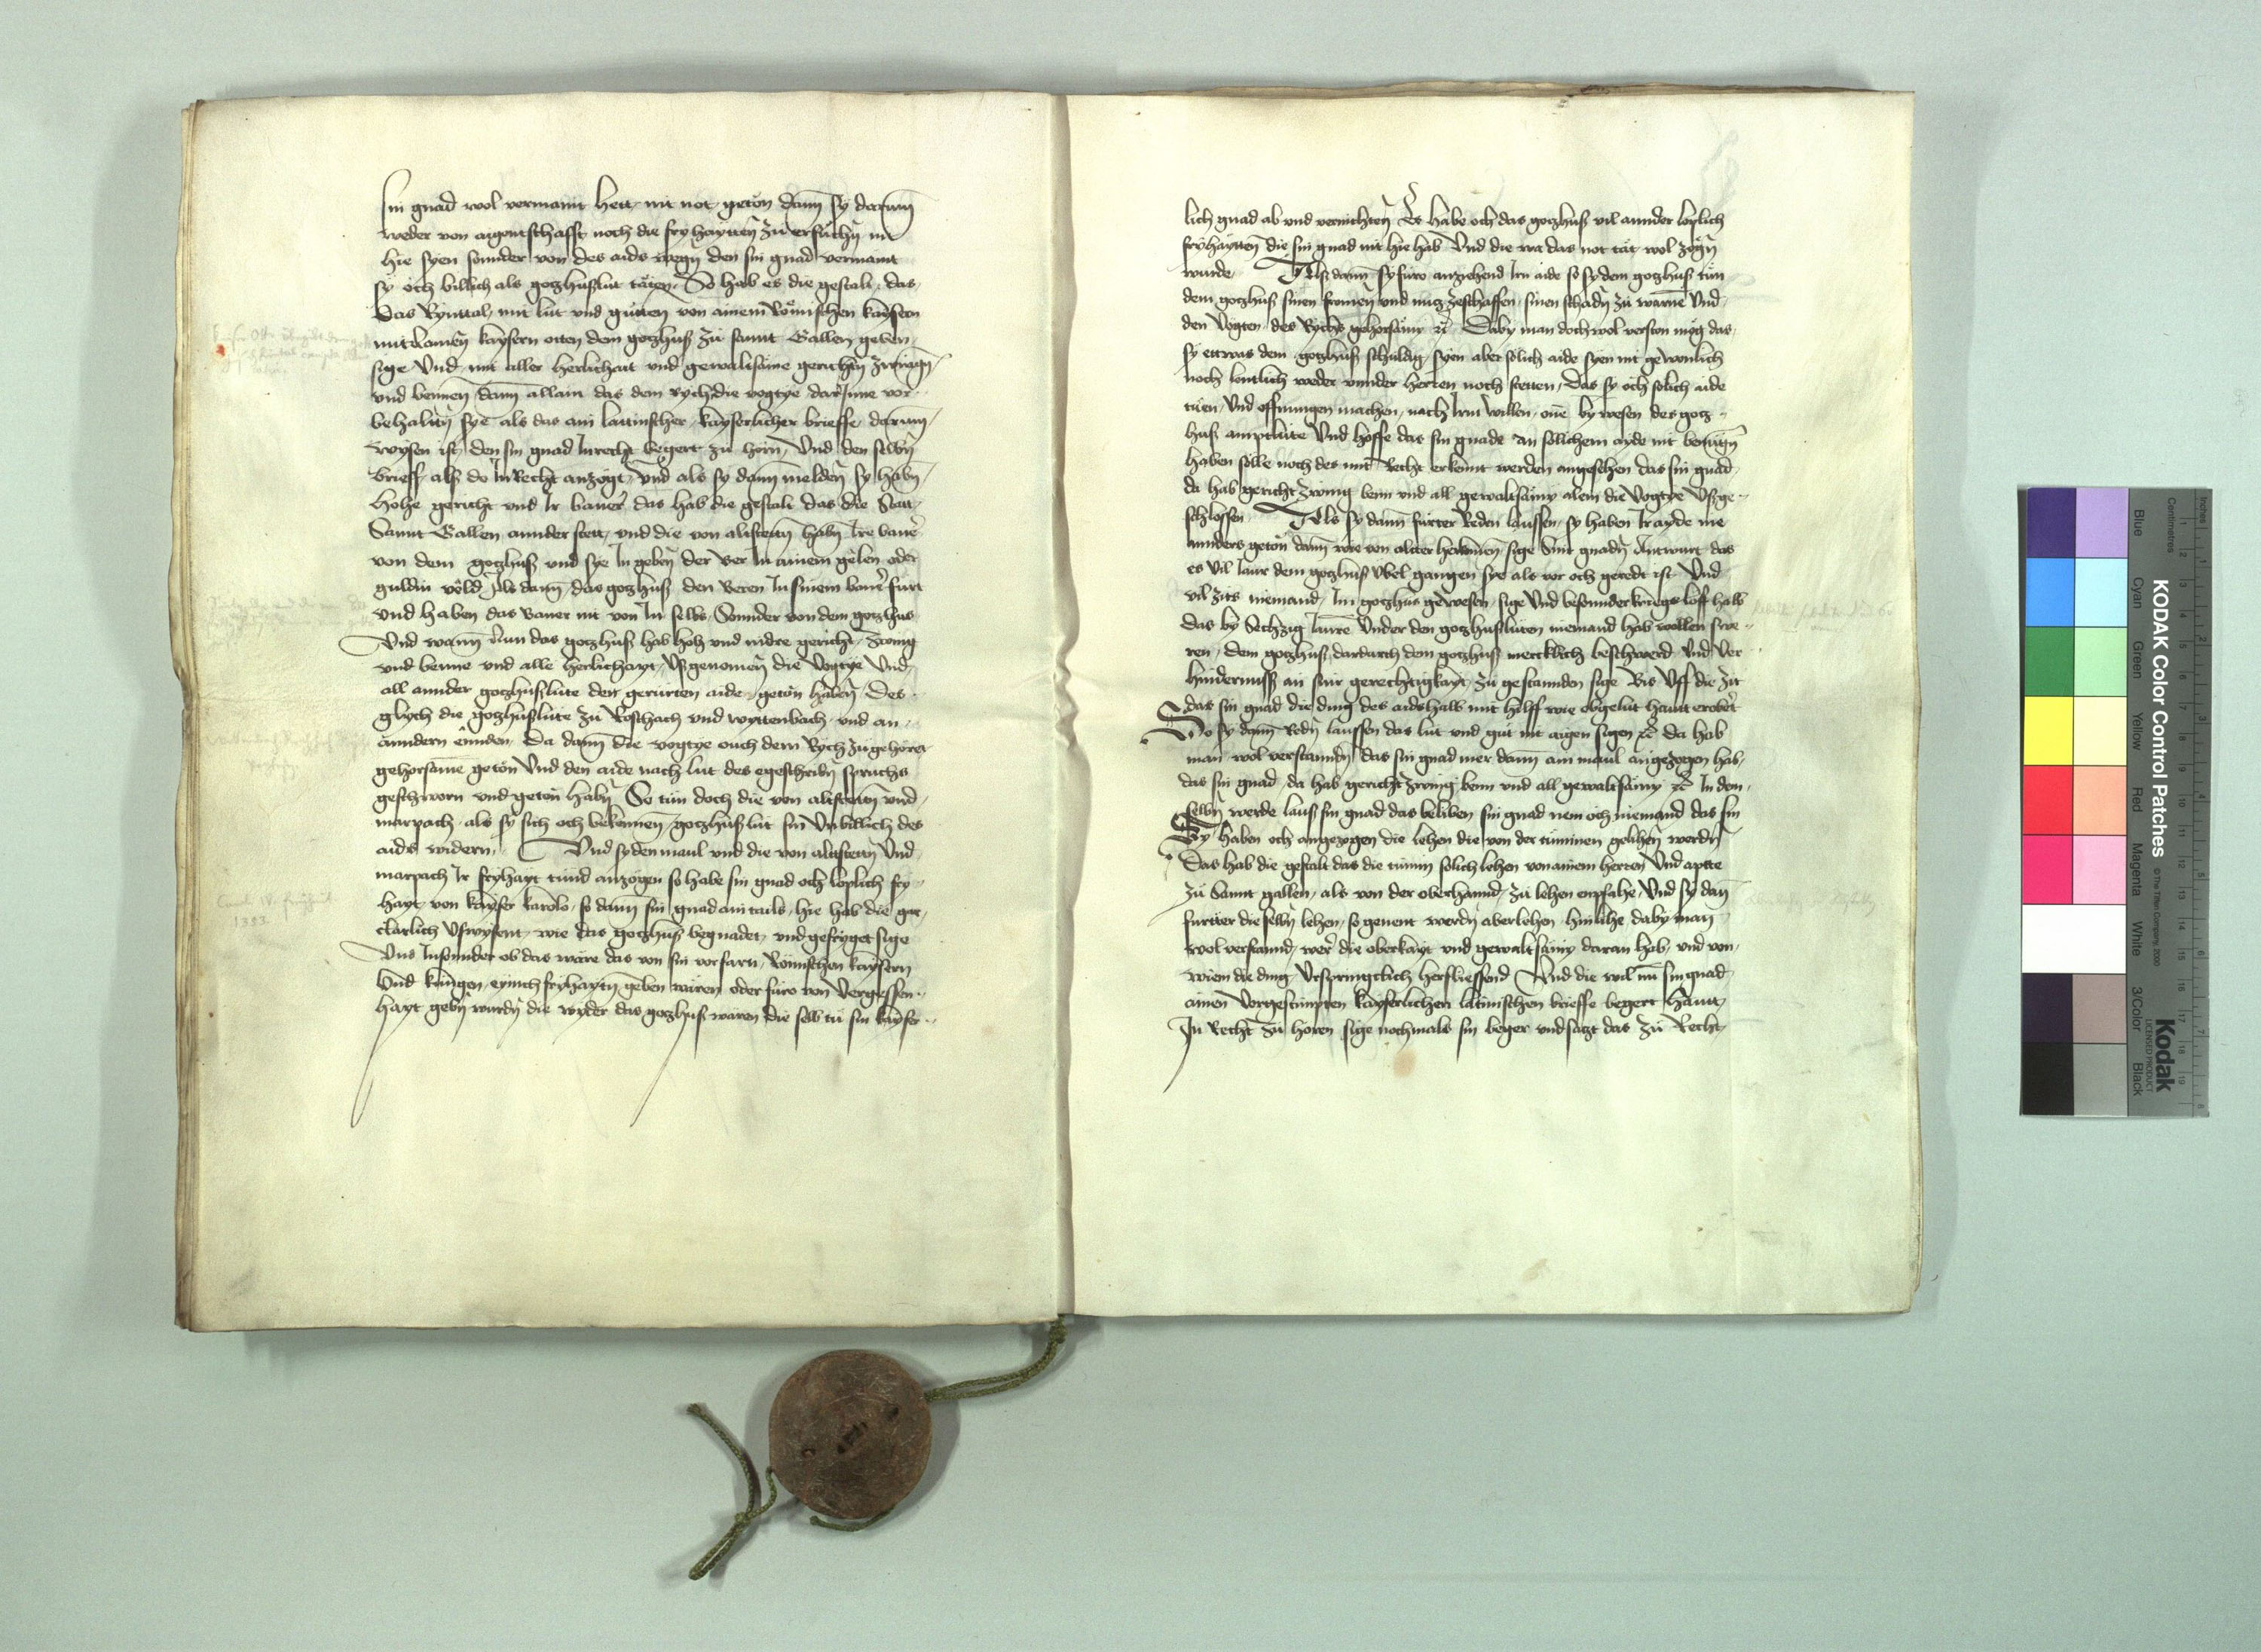 sin gnad wol vermaint hett, nit not getön dann sy darumb
weder von aigentschafft noch die fryhaytten zu ersüchen nit
hie syen sonnder von des aids wegen den sin gnad vermaint
sy öch billich als gotzhußlüt täten, So hab es die gestalt, das
das Rynttal, mit lüt und gütten von ainem Römischen kaysern
mit Namen kaysern otten dem gotzhuß zu sannt Gallen geben
sige Und mit aller herlichait und gewaltsame gerichten zwingen
und bennen dann allain das dem Rych die vogtye darInne vor-
behalten sye als das ain lattinscher, kayserlicher brieffe, darumb
wysen ist, den sin gnad Inrecht begert zu hörn, Und den selben
brieff als do In Recht anzögt, Und als sy dann melden sy haben
hohe gericht und Ir baner das hab die gestalt das die Statt
Sannt Gallen annder stett, und die von altstetten haben Ire baner
von dem gotzhuß und sye In geben der Ber In ainem gelen oder
guldin veld, Als dann das gotzhuß den Beren In sinem baner fürt
und haben das Baner nit von In selbs, Sonnder von dem gotzhus
Und wann nun das gotzhuß hab hoh und nidre gericht, zwing
und benne und alle herlichayt, Ußgenomen die Vogtye Und
all annder gotzhußlüte den gerürten aide, getön haben Des
glych die gotzhußlüte zu Roschach und wyttenbach, und an
anndern ennden, Da dann die vogtye ouch dem Rych zügehöret
gehorsame getön Und den aide nach lut des egeschriben spruchs
geschworn und getön haben So tün doch die von altstetten und
marpach, als sy sich och bekennen gotzhuß lüt sin Unbillich des
aids widern, Und sydenmaul und die von altstetten Und
marpach Ir fryhayt tünd anzögen so habe sin gnad och loplich fry-
hayt, von kayser karolo, so dann sin gnad ain tails, hie hab die gar
clarlich Uswysent, wie das gotzhuß begnadet, und gefryget sige
Uns Insonnder ob das wäre das von sin vorfarn, Römschen kaysern
Und küngen, eynich fryhayten geben wären oder füro von Vergessen-
hayt geben wurden die wyder das gotzhuß wären die selb tü sin kayser-
lich gnad ab und vernichten Es habe och das gotzhuß vil annder loplich
fryhaytten die sin gnad nit hie hab Und die wa das not tät wol zögen
wurde, Als dann sy füro anziehend Irn aide so sy dem gotzhuß tün
dem gotzhuß sinen fromen und nutz zeschaffen, sinen schaden zu warne Und
den Vögten, des Rychs gehorsamy etc Daby man doch wol verston mög das
sy ettwas dem gotzhuß schuldig syen aber sölich aide syen nit gewonlich
noch lentlich weder unnder herren noch stetten, Das sy och solich aide
tüen, Und offnungen machen, nach Irm willen, one bywesen des gotz-
huß amptlüte Und hoffe das sin gnade an söllichem ayde nit benügen
haben sölle noch des mit Recht erkennt werden angesehen das sin gnad
da hab gericht zwing benn und all gewaltsamy alein die Vogtye Ußge-
schlossen Als sy dann fürter Reden laussen, sy haben Ir ayde nie
annders getön dann wie von alter herkomen sige Sine gnaden Antwurt das
es Vil Iaur dem gotzhuß Übel gangen sye als vor och geredt ist Und
vil zits niemand, Im gotzhus gewesen, sige Und besonnder kriegs löff halb
das by Sechzig Iaren Unnder den gotzhußlüten niemand hab wollen swe-
ren, dem gotzhuß dardurch dem gotzhuß mercklich beschwerd Und Ver
hindernuss an sinr gerechtigkayt, zu gestannden sige Bis Uff die zit
das sin gnad die ding des aidshalb mit hilff wie obgelut haut erobert
So sy dann Reden laussen das lüt und gut nit aigen sigen etc da hab
man wol verstannden das sin gnad mer dann ain maul angezogen hab,
das sin gnad, da hab gericht zwing benn und all gewaltsamy etc In dem
selben werde lauss sin gnad das beliben sin gnad nem och niemand das sin
Sy haben och angezogen die lehen die von der ruminen gelihen werden
Das hab die gestalt das die rumin solich lehen von ainem herren Und aptte
zu Sannt gallen, als von der oberhannd, zu lehen enpfahe, Und sy dan
fürtter die selben lehen, so genent werden aberlehen hinlihe daby man
wol verstannd, wer die oberkayt und gewaltsamy daran hab, und von
wiem die ding Ursprungclich herfliessend Und die wil nu sin gnad
ainen Vorgestimpten kayserlichen latinischen brieffe begert haut
In Recht zu hören sige nochmals sin beger und satzt das zu Recht
KODAK Color Control Patches
Blue Cyan Green Yellow Red Magenta White 3/Color Black
Kodak
LICENSED PRODUCT
Inches
Centimetres
© The Tiffen Company, 2000